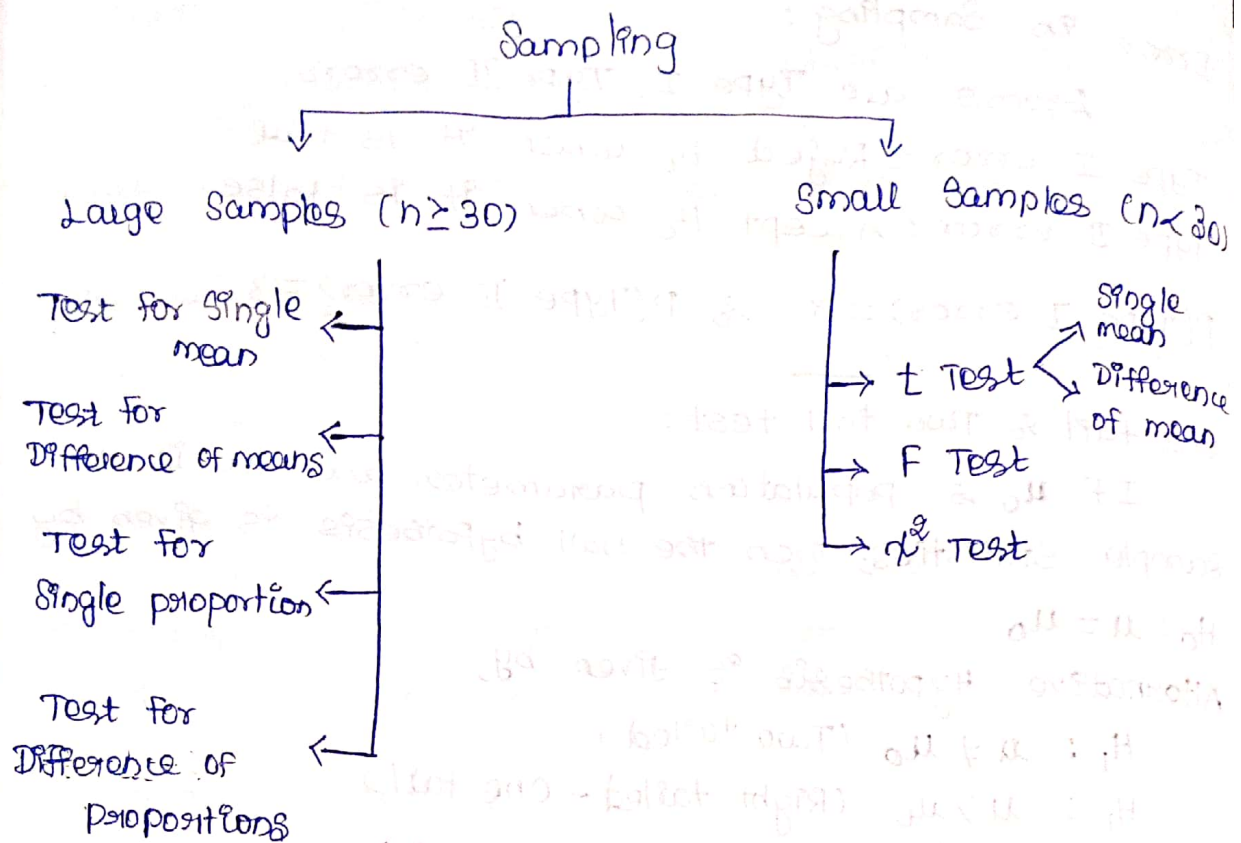 Sampling
Large Samples (n≥30)
Small Samples (n<30)
Test for Single
mean
Test for
Difference of means
Test for
Single proportion
Test for
Difference of
proportions
t Test
Single
mean
Difference
of mean
F Test
χ² Test